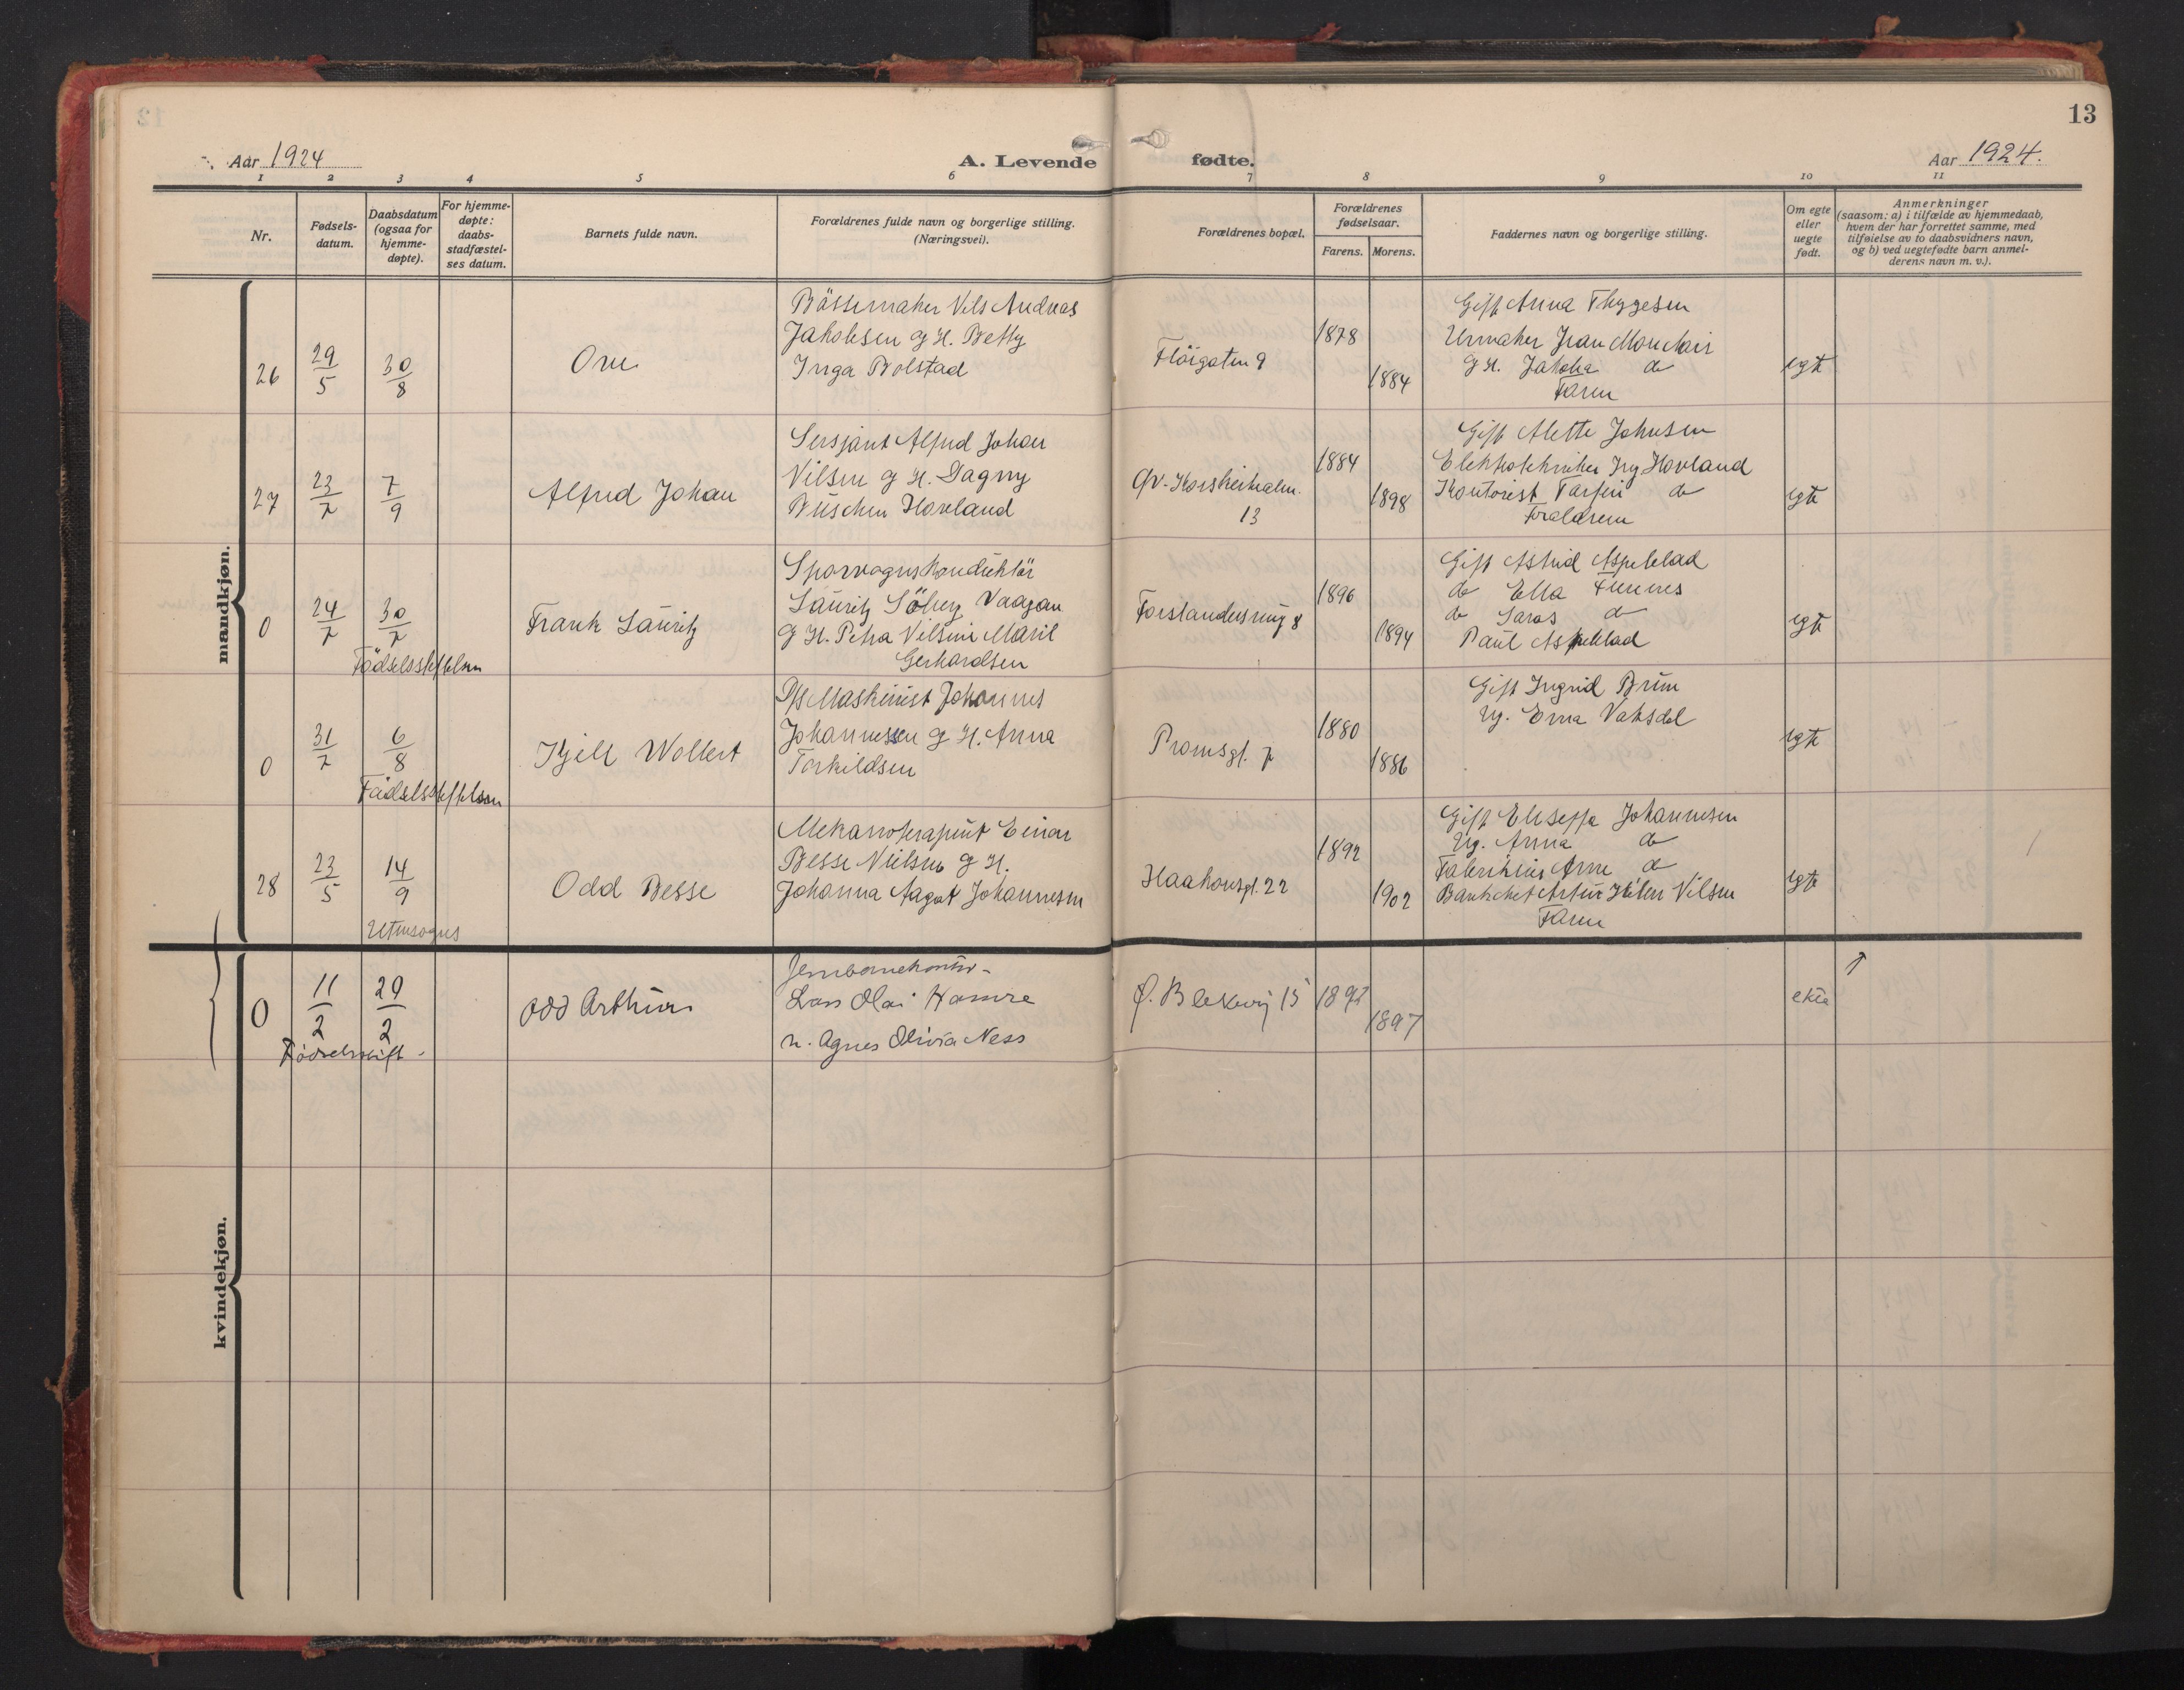 13
Aar 1924
A. Levende fødte.
Aar 1924.
1 2 3 4 5 6 7 8 9 10 11
Nr.
Fødsels-
datum.
Daabsdatum
(ogsaa for
hjemme-
døpte).
For hjemme-
døpte:
daabs-
stadfæstel-
ses datum.
Barnets fulde navn.
Forældrenes fulde navn og borgerlige stilling.
(Næringsvei).
Forældrenes bopæl.
Forældrenes
fødselsaar.
Farens. Morens.
Faddernes navn og borgerlige stilling.
Om egte
eller
uegte
født.
Anmerkninger
(saasom: a) i tilfælde av hjemmedaab,
hvem der har forrettet samme, med
tilføielse av to daabsvidners navn,
og b) ved uegtefødte barn anmel-
derens navn m. v.).
mandkjøn.
26
29/5
30/8
Ove
Bössemaker Nils Andreas
Jakobsen g H. Betty
Inga Bolstad
Flöigaten 9
1878
1884
Gift Anna Thygesen
Urmaker Jean Monclair
g H. Jakoba do
Faren
egte
27
23/7
7/9
Alfred Johan
Sersjant Alfred Johan
Nilsen g H. Dagny
Büschen Hovland
Øv. Korskirkealm.
13
1884
1898
Gift Alette Johnsen
Elektrotekniker Ing Hovland
Kontorist Torfin do
Foreldrene
egte
0
24/7
30/7
Födselsskiftelsen
Frank Lauritz
Sporvognskonduktör
Lauritz Söberg Vaagan
g H. Petra Nilsine Marie
Gerhardsen
Forstandersmug 8
1896
1894
Gift Astrid Aspeblad
do Ella Finnes
do Saras do
Paul Aspeblad
egte
0
31/7
6/8
Födselsskiftelsen
Kjell Wollert
D/S Maskinist Johannes
Johannessen g H. Anna
Torkildsen
Promsgt. 7
1880
1886
Gift Ingrid Brun
Ug. Erna Vaksdal
egte
28
23/5
14/9
Utensogns
Odd Besse
Mekanoterapeut Einar
Besse Nielsen g H.
Johanna Aagot Johannesen
Haakonsgt. 22
1892
1902
Gift Eliseffa Johannesen
Ug. Anna do
Fabrikeier Arne do
Bankchef Artur Nilsen
Faren
egte
kvindekjøn.
0
11/2
29/2
Fødselsskift.
Odd Arthur
Lars Olai Hamre
n. Agnes Olivia Ness
Ø. Blekevj 15
1892
1897
ekte